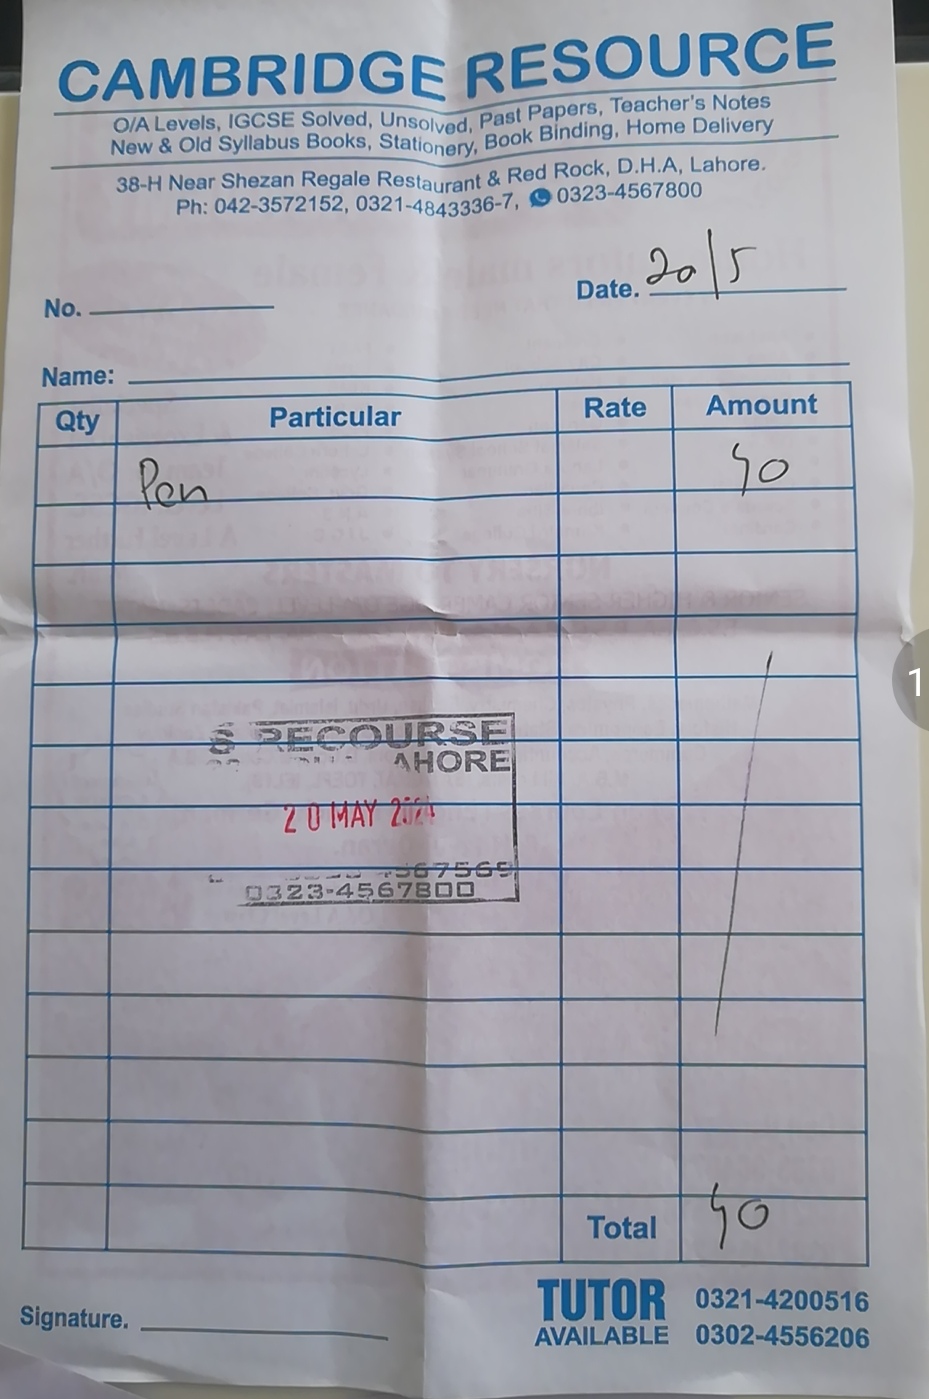 CAMBRIDGE RESOURCE
O/A Levels, IGCSE Solved, Unsolved, Past Papers, Teacher's Notes
New & Old Syllabus Books, Stationery, Book Binding, Home Delivery
38-H Near Shezan Regale Restaurant & Red Rock, D.H.A, Lahore.
Ph: 042-3572152, 0321-4843336-7, 0323-4567800
No. Date. 20/5
Name:
Qty Particular Rate Amount
Pen 40
S RECOURSE
AHORE
20 MAY 2024
567569
0323-4567800
Total 40
Signature. TUTOR AVAILABLE
0321-4200516
0302-4556206
1